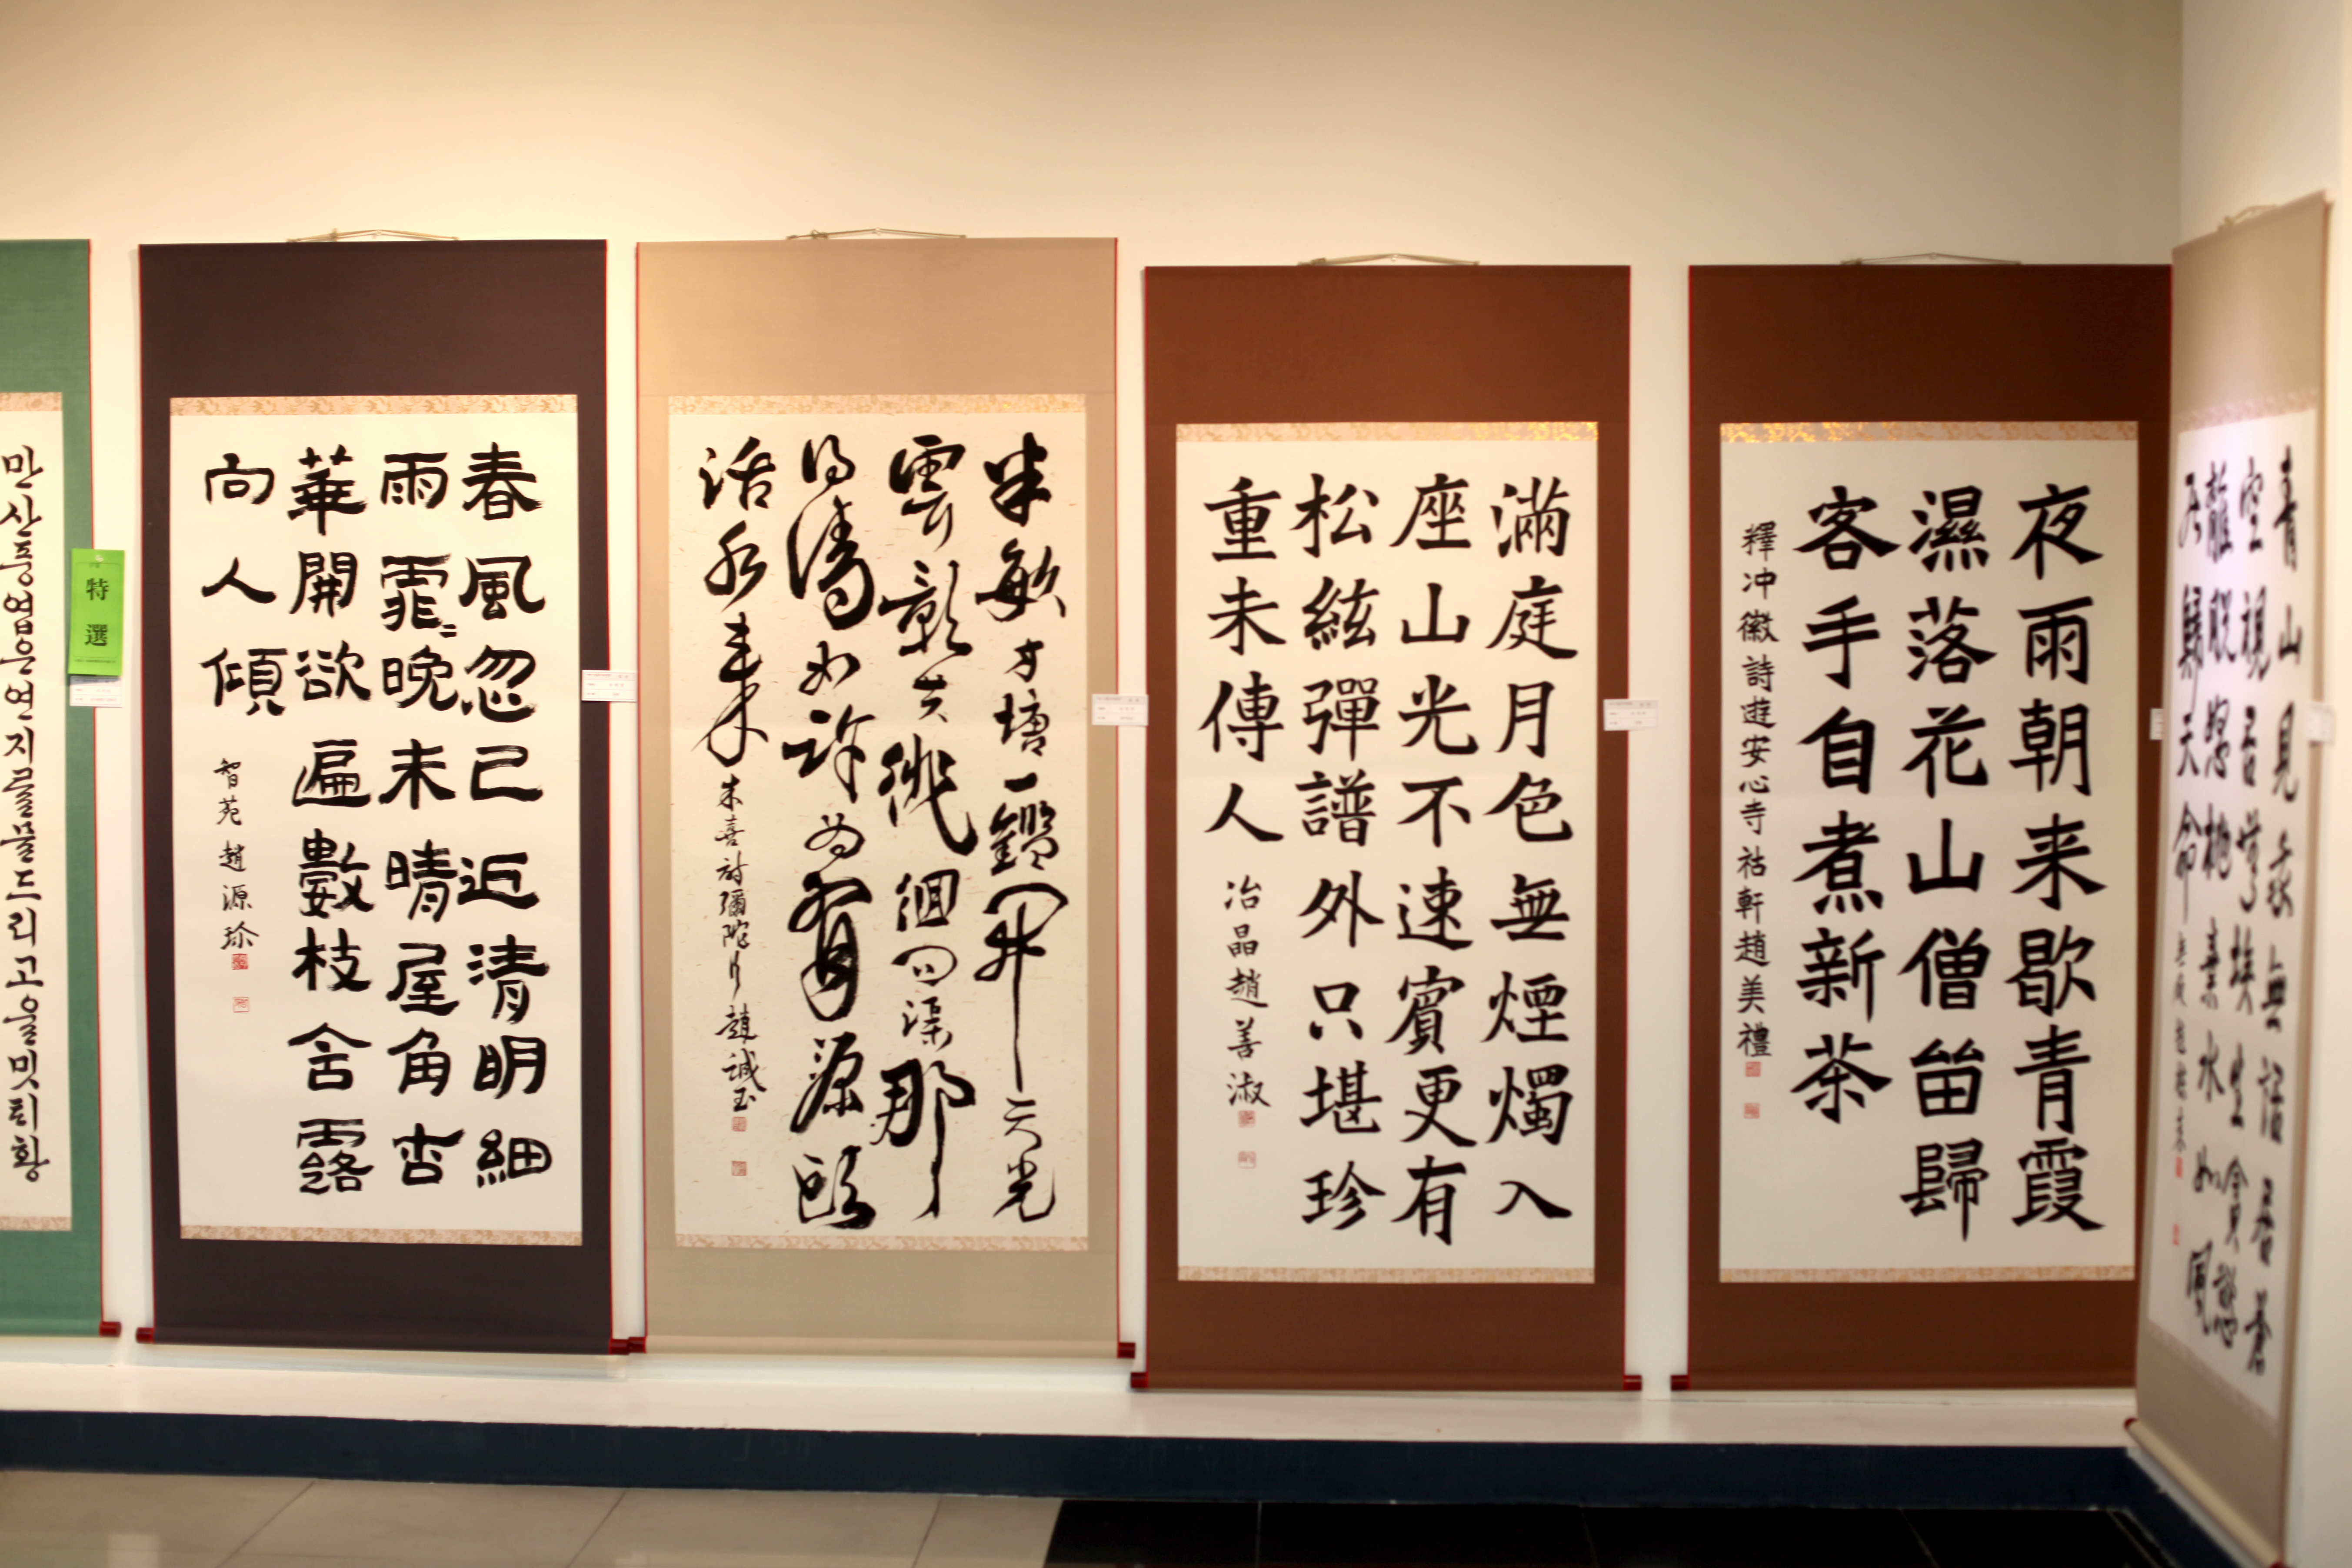 만산풍엽은연지를물드리고울밋틔황
特選
春風忽已近清明細
雨霏〻晚未晴屋角杏
華開欲遍數枝含露
向人傾
智苑 趙源珍
半畝方塘一鑑開天光
雲影共徘徊問渠那
得清如許為有源頭
活水来
朱喜詩彌陀 趙誠玉
滿庭月色無煙燭入
座山光不速賓更有
松絃彈譜外只堪珍
重未傳人
冶晶趙善淑
夜雨朝来歇青霞
濕落花山僧留歸
客手自煮新茶
釋冲徽詩遊安心寺祜軒趙美禮
青山見我無語居蒼
空視吾無埃生貪慾
離脫怒抛棄水如風
居歸天命